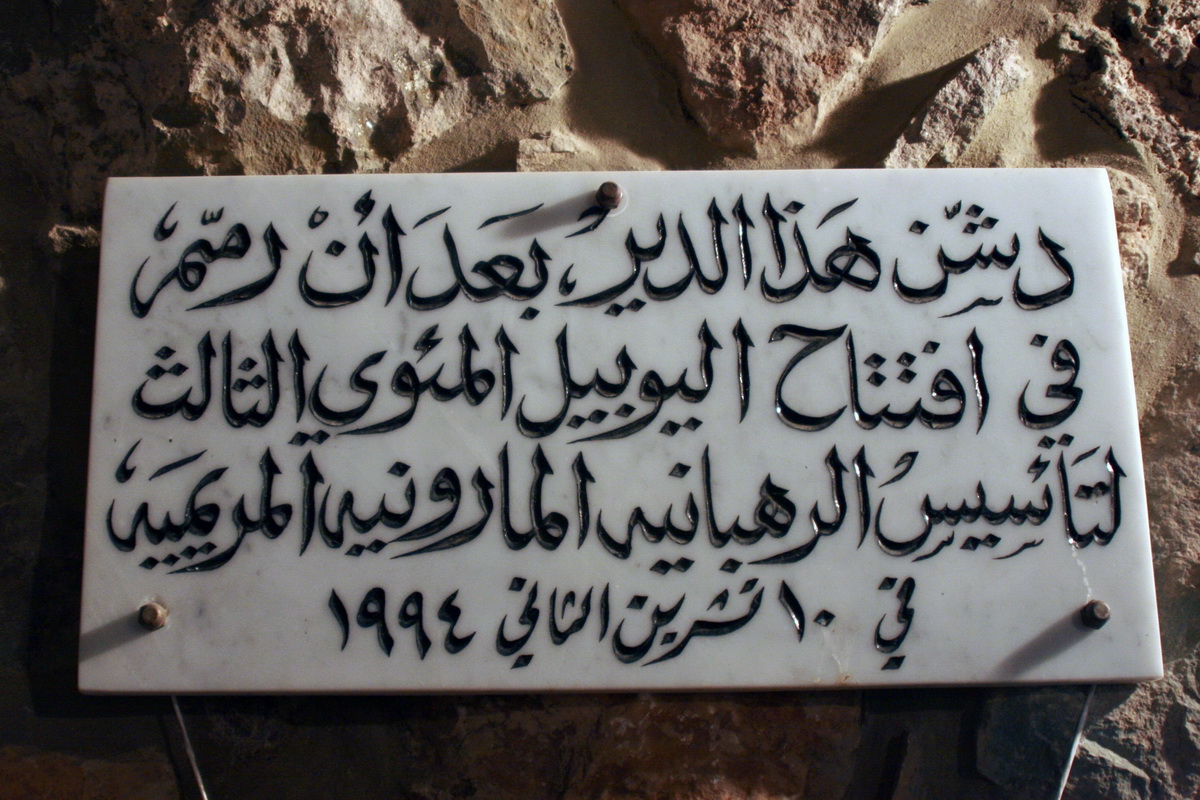 دشّن هَذا الديرُ، بعَد أنْ رمّم،
في افتتاح اليوبيل المئوي الثالث
لتَأسيسِ الرهبانيه المارونيه المريميَة
في ١٠ تشرين الثاني ١٩٩٤